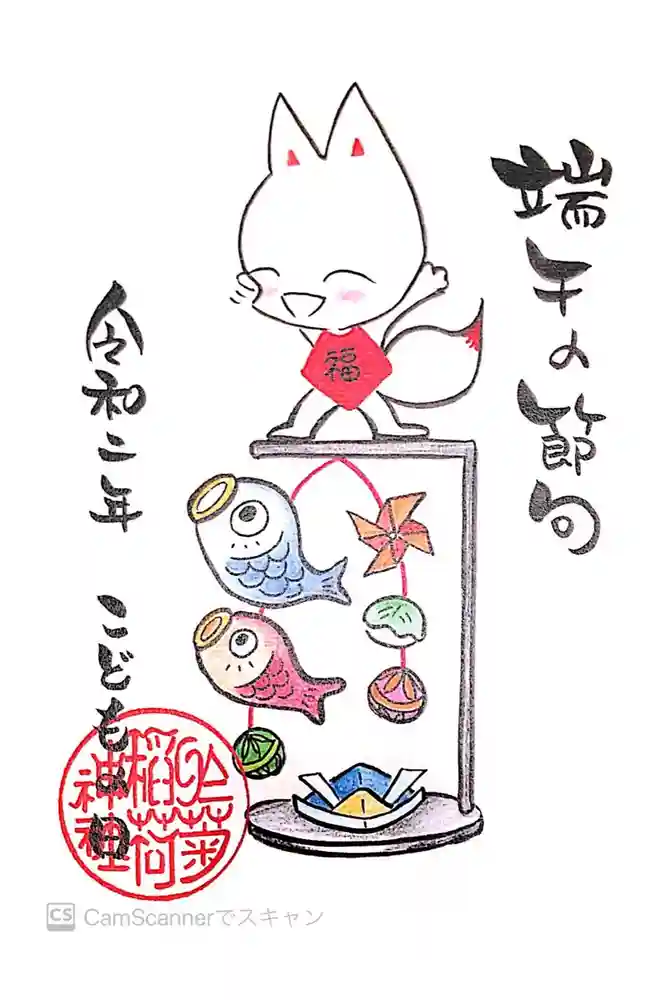 端午の節句
福
令和二年 こどもの日
於菊稲荷神社
CS CamScannerでスキャン